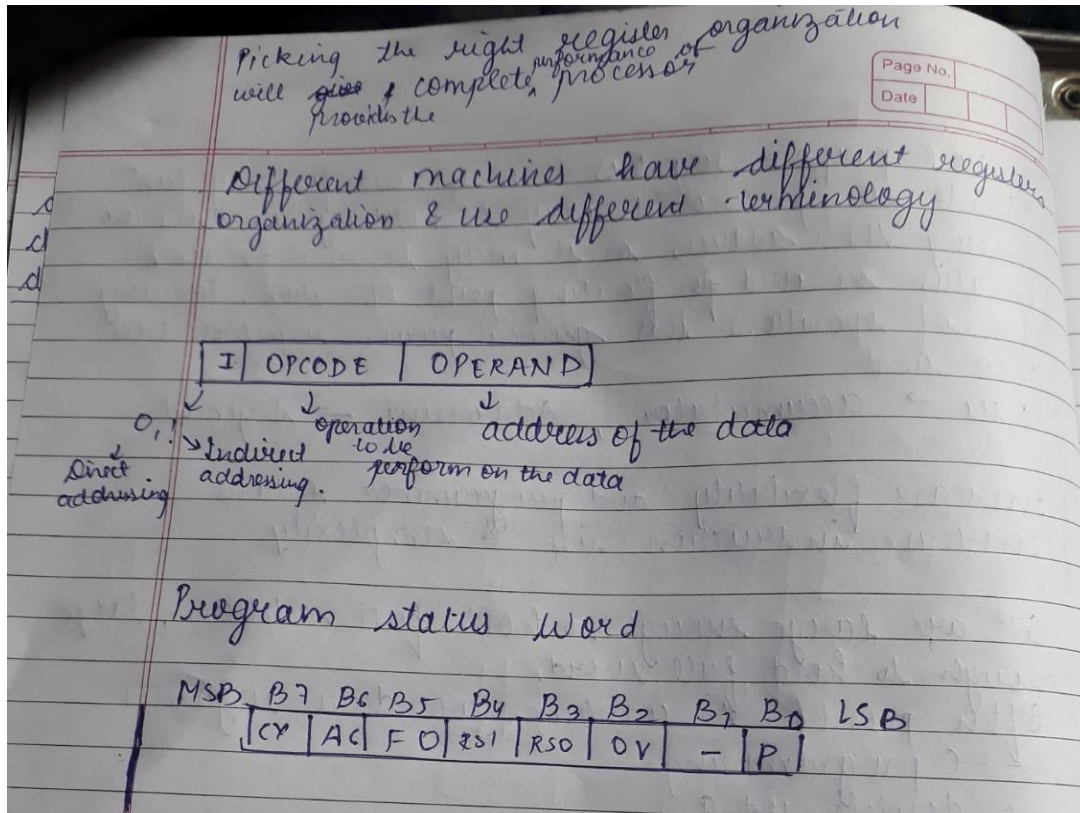 Picking the right register organization
will provides the complete performance of processor
Page No.
Date
Different machines have different registers
organization & use different terminology
d
d
I OPCODE OPERAND
0, 1
Direct
addressing
Indirect
addressing.
operation
to be
perform on the data
address of the data
Program status word
MSB B7 B6 B5 B4 B3 B2 B1 B0 LSB
CY AC F0 RS1 RS0 OV - P